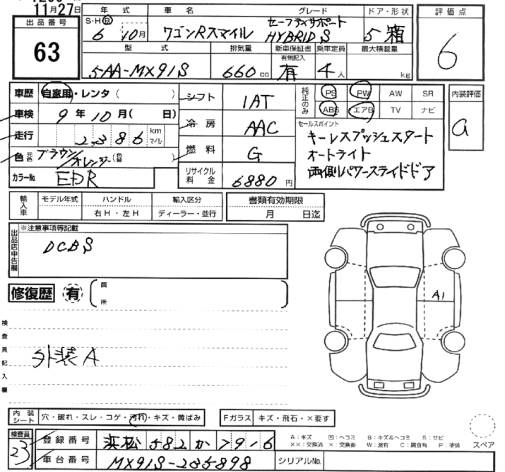 11月27日
出品番号 63
年式 S・H・R 6年 10月
車名 ワゴンRスマイル
グレード セーフティサポート
HYBRID S
ドア・形状 5 箱
評価点 6
型式 5AA-MX91S
排気量 660 cc
新車保証書 有効記入 有
乗車定員 4人
最大積載量 kg
車歴 自家用・レンタ ( )
シフト IAT
純正のみ PS PW AW SR
ABS エアB TV ナビ
内装評価 a
車検 9年 10月 ( 日)
冷房 AAC
セールスポイント
キーレスプッシュスタート
オートライト
両側パワースライドドア
走行 2386 km マイル
燃料 G
色 ブラウン/オレンジ
カラーNo. EDR
リサイクル料金 6880 円
輸入車 モデル年式 ハンドル 輸入区分
右H・左H ディーラー・並行
書類有効期限
月 日迄
出品店申告欄
※注意事項等記載
DCBS
修復歴 有 箇所
検査員記入欄
外装A
A1
内装 シート 穴・破れ・スレ・コゲ・汚れ・キズ・黄ばみ
Fガラス キズ・飛石・×要す
検査員 23
登録番号 浜松 582 か 79-6
A:キズ U:ヘコミ B:キズ&ヘコミ S:サビ
スペア
車台番号 MX91S-235898
シリアルNo.